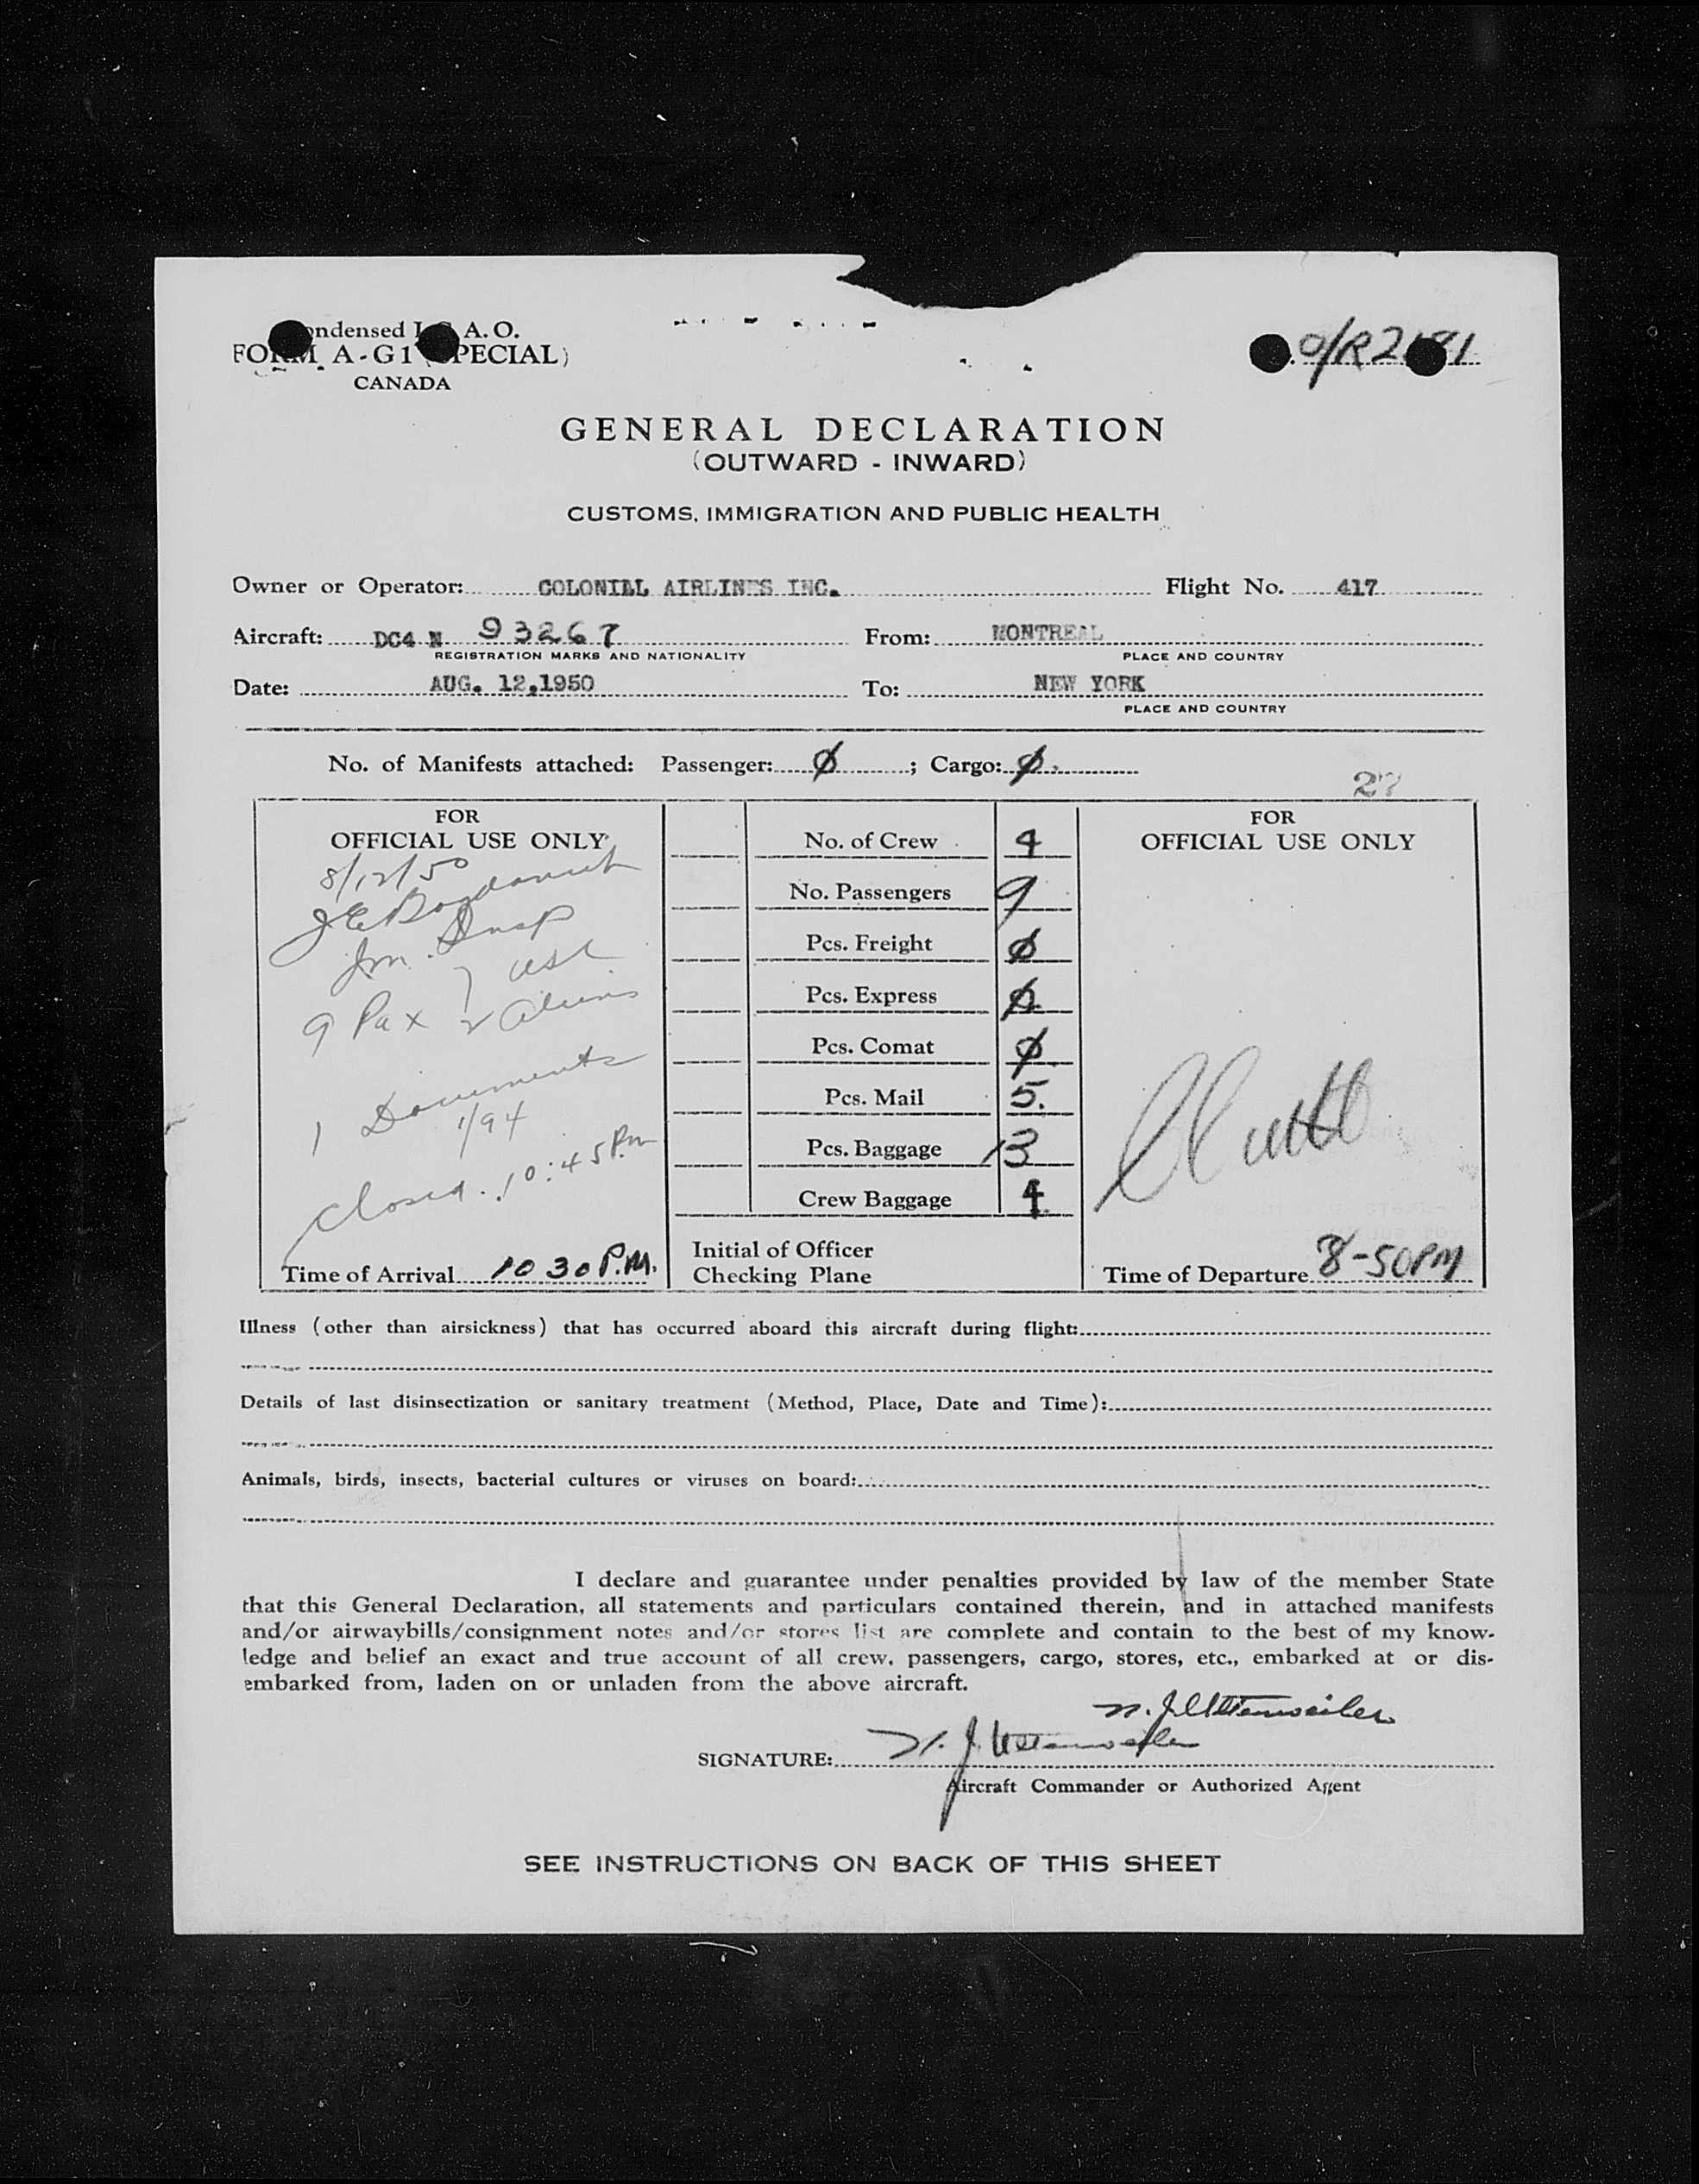 Condensed I.C.A.O.
FORM A-G1 (SPECIAL)
CANADA
GENERAL DECLARATION
(OUTWARD - INWARD)
CUSTOMS, IMMIGRATION AND PUBLIC HEALTH
Owner or Operator: COLONIAL AIRLINES INC. Flight No. 417
Aircraft: DC4 N 93267 From: MONTREAL
REGISTRATION MARKS AND NATIONALITY PLACE AND COUNTRY
Date: AUG. 12,1950 To: NEW YORK
PLACE AND COUNTRY
No. of Manifests attached: Passenger: Ø ; Cargo: Ø
27
FOR
OFFICIAL USE ONLY
8/12/50
Im. Insp
7 USC
9 Pax 2 Aliens
1 Documents
1/94
Closed. 10:45 P.m
Time of Arrival 10 30 P.M.
No. of Crew 4
No. Passengers 9
Pcs. Freight Ø
Pcs. Express Ø
Pcs. Comat Ø
Pcs. Mail 5.
Pcs. Baggage 13
Crew Baggage 4
Initial of Officer
Checking Plane
FOR
OFFICIAL USE ONLY
Time of Departure 8-50PM
Illness (other than airsickness) that has occurred aboard this aircraft during flight:
Details of last disinsectization or sanitary treatment (Method, Place, Date and Time):
Animals, birds, insects, bacterial cultures or viruses on board:
I declare and guarantee under penalties provided by law of the member State
that this General Declaration, all statements and particulars contained therein, and in attached manifests
and/or airwaybills/consignment notes and/or stores list are complete and contain to the best of my know-
ledge and belief an exact and true account of all crew, passengers, cargo, stores, etc., embarked at or dis-
embarked from, laden on or unladen from the above aircraft.
SIGNATURE:
Aircraft Commander or Authorized Agent
SEE INSTRUCTIONS ON BACK OF THIS SHEET